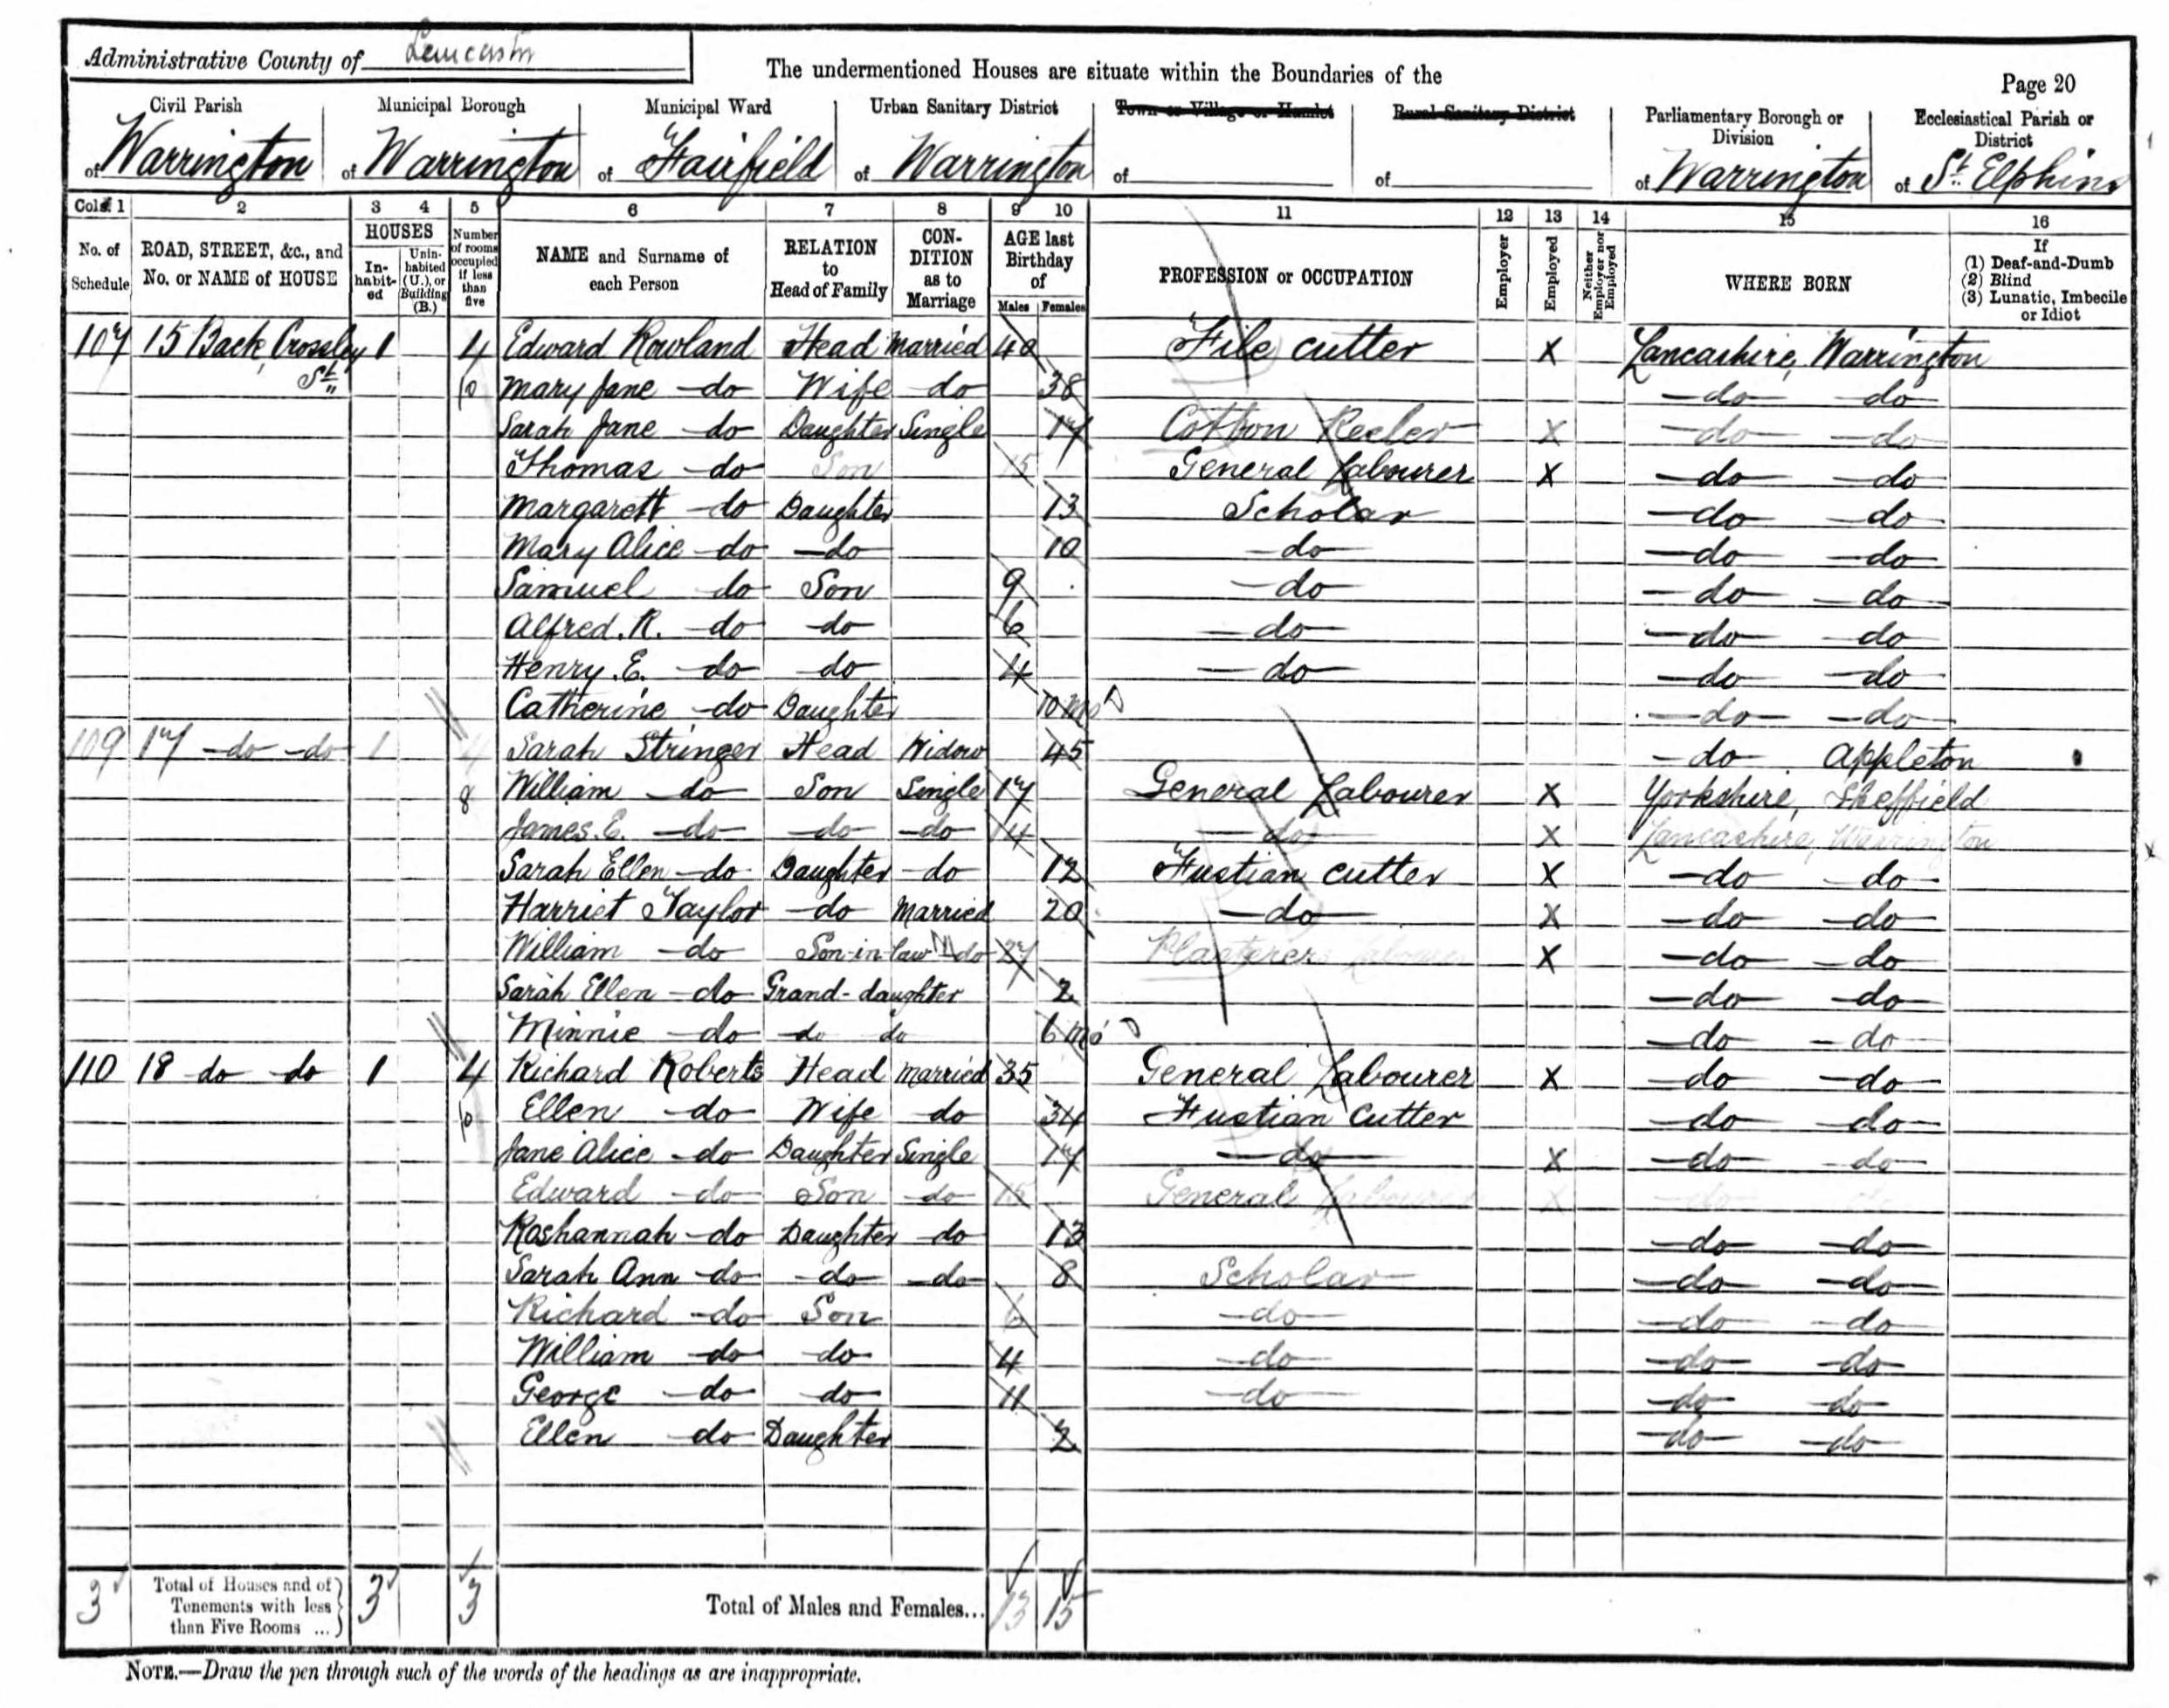 Administrative County of Lancaster
The undermentioned Houses are situate within the Boundaries of the
Page 20
Civil Parish Municipal Borough Municipal Ward Urban Sanitary District Town or Village or Hamlet Rural Sanitary District Parliamentary Borough or Division Ecclesiastical Parish or District
of Warrington of Warrington of Fairfield of Warrington of of of Warrington of St. Elphins
Cols. 1 2 3 4 5 6 7 8 9 10 11 12 13 14 15 16
No. of Schedule ROAD, STREET, &c., and No. or NAME of HOUSE HOUSES Inhabited Uninhabited (U.), or Building (B.) Number of rooms occupied if less than five NAME and Surname of each Person RELATION to Head of Family CONDITION as to Marriage AGE last Birthday of Males Females PROFESSION or OCCUPATION Employer Employed Neither Employer nor Employed WHERE BORN If (1) Deaf-and-Dumb (2) Blind (3) Lunatic, Imbecile or Idiot
107 15 Back Crossley St. 1 4 Edward Rowland Head Married 40 File cutter X Lancashire, Warrington
10 Mary Jane do Wife do 38 do do
Sarah Jane do Daughter Single 17 Cotton Reeler X do do
Thomas do Son 15 General Labourer X do do
Margarett do Daughter 13 Scholar do do
Mary Alice do do 10 do do do
Samuel do Son 9 do do do
Alfred. R. do do 6 do do do
Henry. E. do do 4 do do do
Catherine do Daughter 10 mos do do
109 17 do do 1 4 Sarah Stringer Head Widow 45 do Appleton
8 William do Son Single 17 General Labourer X Yorkshire, Sheffield
James. E. do do do 14 do X Lancashire, Warrington
Sarah Ellen do Daughter do 12 Fustian Cutter X do do
Harriet Taylor do Married 20 do X do do
William do Son-in-law do 27 Plasterers Labourer X do do
Sarah Ellen do Grand-daughter 2 do do
Minnie do do do 6 mo do do
110 18 do do 1 4 Richard Roberts Head Married 35 General Labourer X do do
10 Ellen do Wife do 34 Fustian Cutter do do
Jane Alice do Daughter Single 17 do X do do
Edward do Son do 15 General Labourer X do do
Roshannah do Daughter do 13 do do
Sarah Ann do do do 8 Scholar do do
Richard do Son 6 do do do
William do do 4 do do do
George do do 4 do do do
Ellen do Daughter 2 do do
3 Total of Houses and of Tenements with less than Five Rooms ... 3 3 Total of Males and Females... 13 15
NOTE.—Draw the pen through such of the words of the headings as are inappropriate.